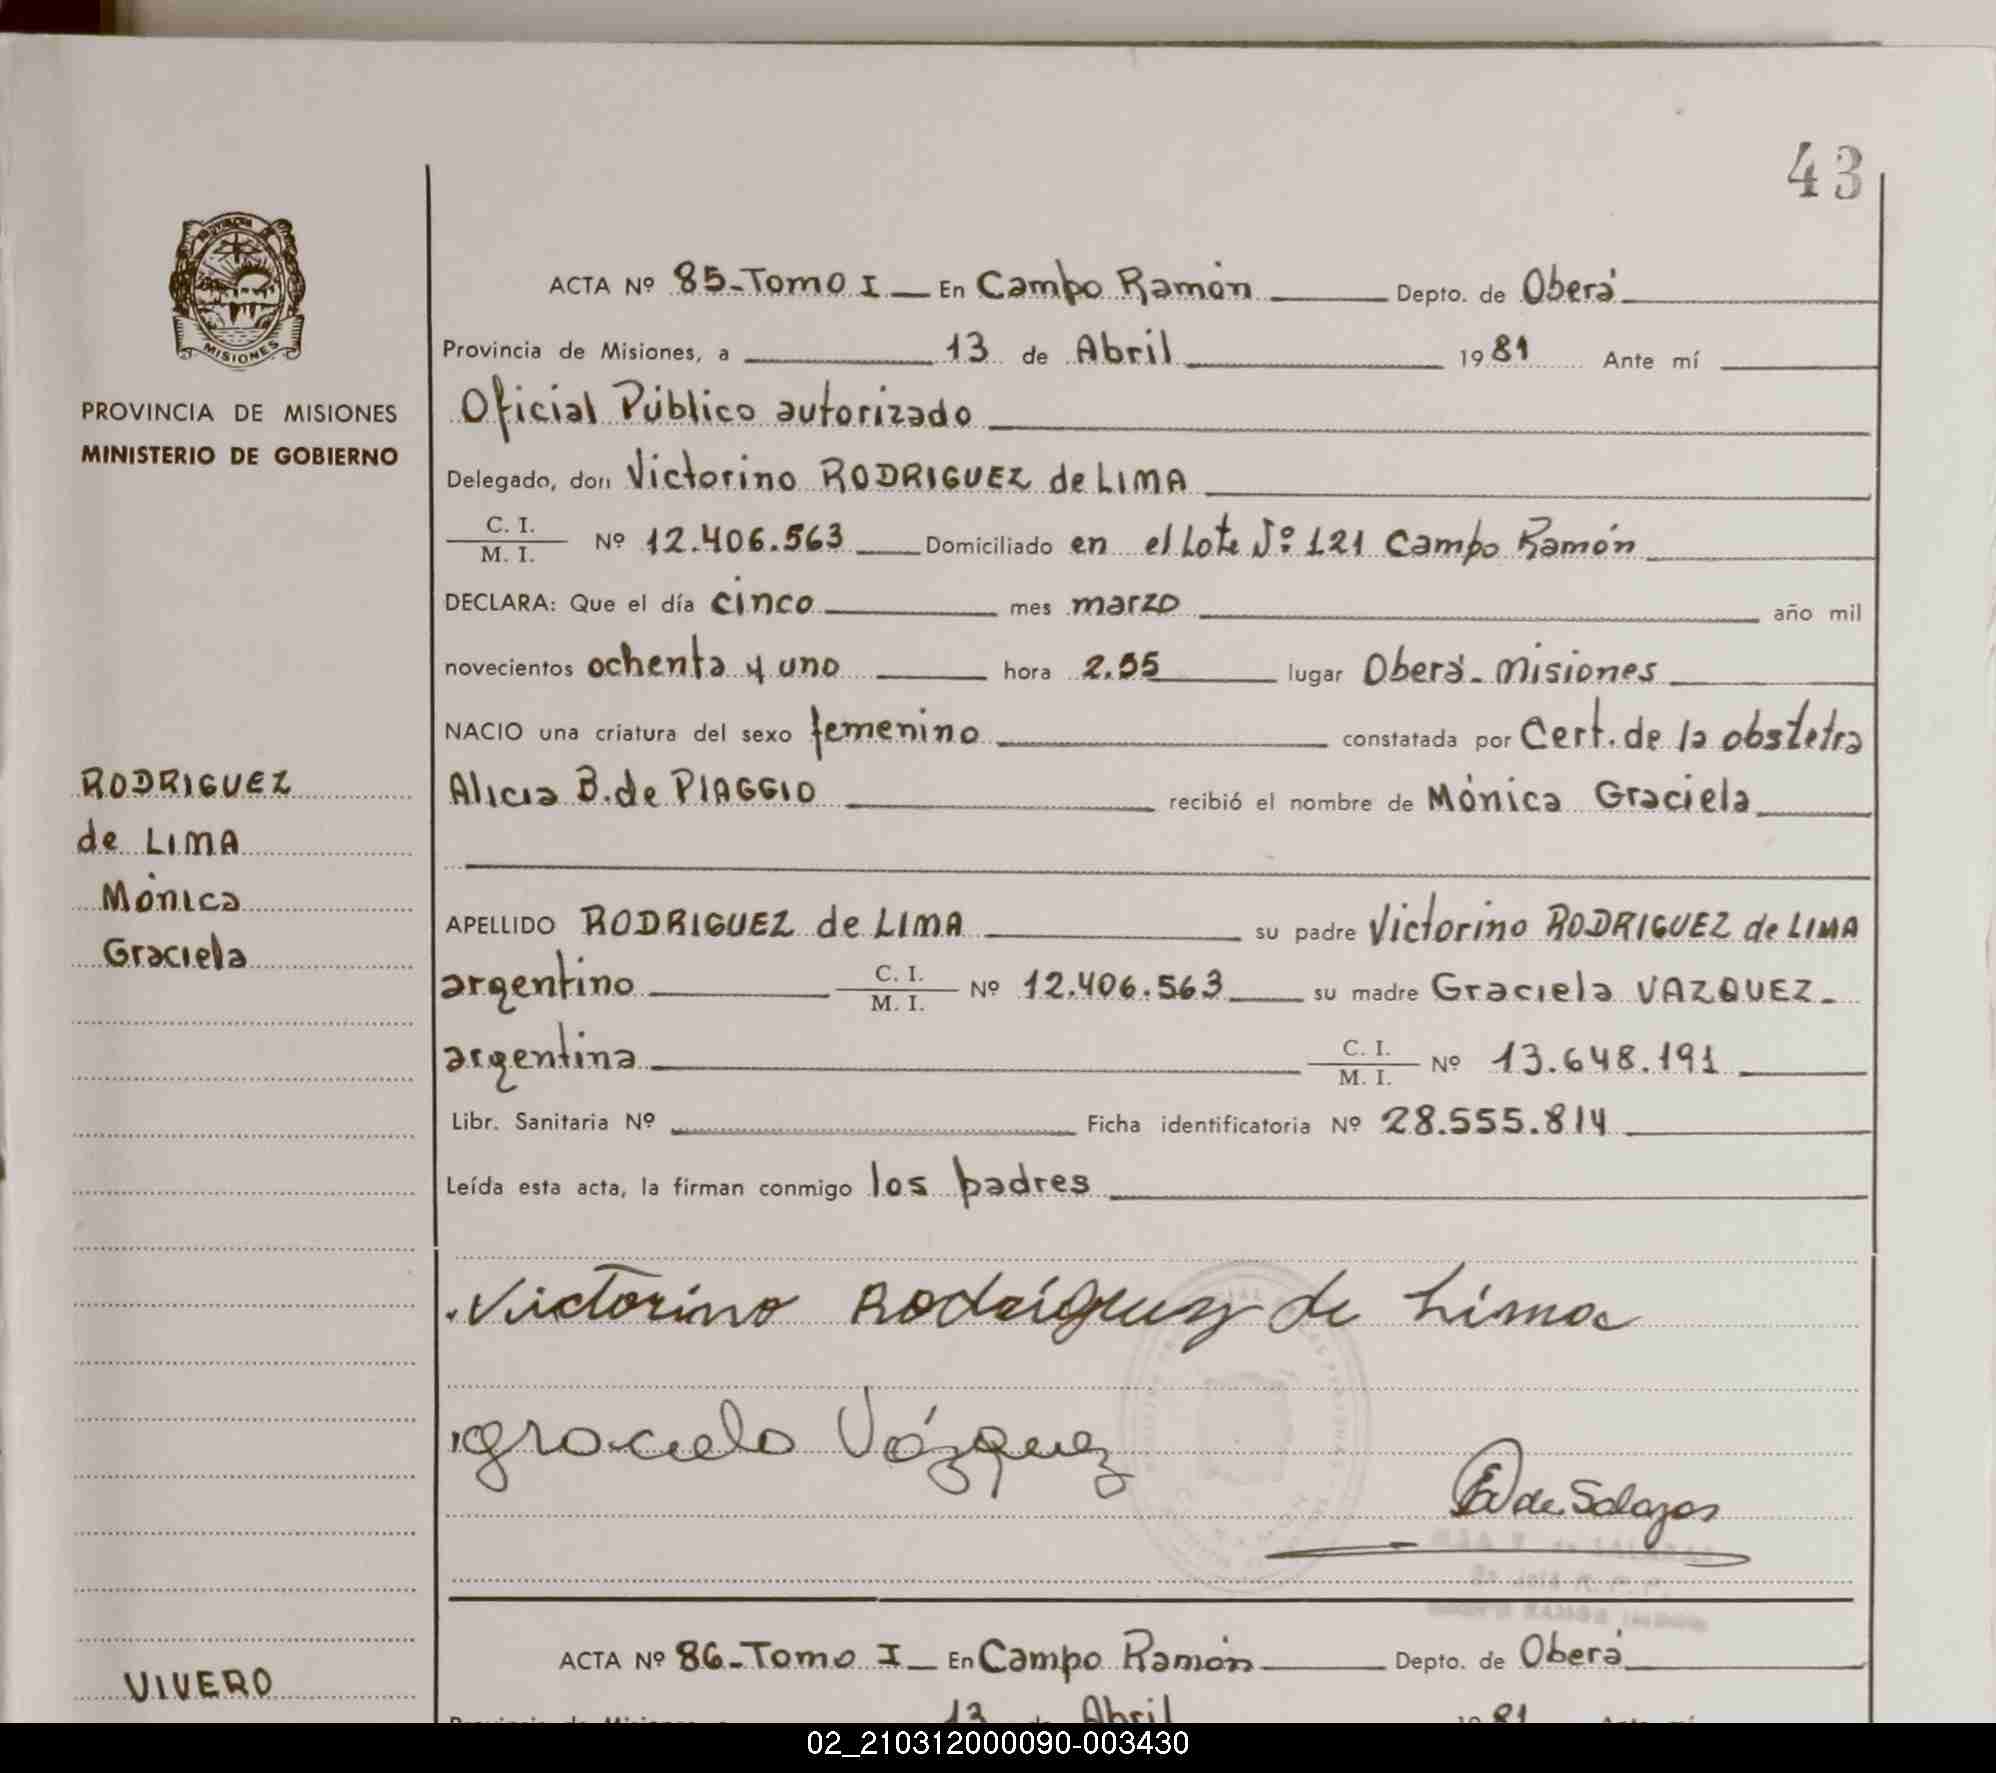 43
ACTA Nº 85-Tomo I En Campo Ramón Depto. de Oberá
Provincia de Misiones, a 13 de Abril 1981 Ante mí
Oficial Público autorizado
Delegado, don Victorino RODRIGUEZ de LIMA
C. I.
M. I. Nº 12.406.563 Domiciliado en el Lote Nº 121 Campo Ramón
DECLARA: Que el día cinco mes marzo año mil
novecientos ochenta y uno hora 2.55 lugar Oberá - Misiones
NACIO una criatura del sexo femenino constatada por Cert. de la obstetra
Alicia B. de PIAGGIO recibió el nombre de Mónica Graciela
APELLIDO RODRIGUEZ de LIMA su padre Victorino RODRIGUEZ de LIMA
argentino C. I.
M. I. Nº 12.406.563 su madre Graciela VAZQUEZ -
argentina C. I.
M. I. Nº 13.648.191
Libr. Sanitaria Nº Ficha identificatoria Nº 28.555.814
Leída esta acta, la firman conmigo los padres
Victorino Rodríguez de Lima
Graciela Vázquez
de Salazar
PROVINCIA DE MISIONES
MINISTERIO DE GOBIERNO
MISIONES
RODRIGUEZ
de LIMA
Mónica
Graciela
ACTA Nº 86-Tomo I En Campo Ramón Depto. de Oberá
VIVERO
13 de Abril 1981
02_210312000090-003430